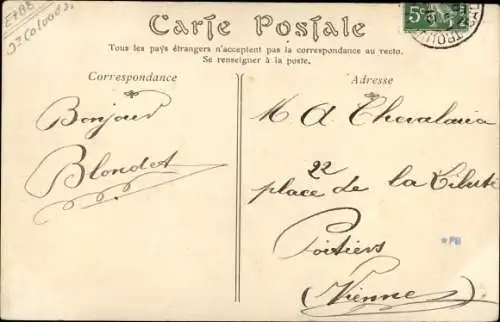 Carte Postale
Tous les pays étrangers n'acceptent pas la correspondance au recto.
Se renseigner à la poste.
Correspondance
Adresse
Bonjour
Blondet
M. A. Chevalaria
22
place de la Liberté
Poitiers
(Vienne)
*PB
5c